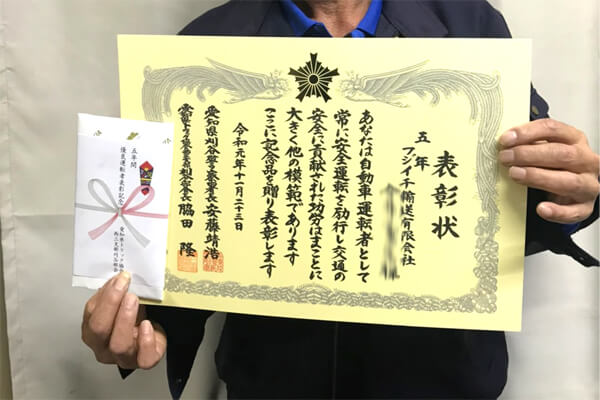 表彰状
五年
フジイチ輸送有限会社
あなたは自動車運転者として
常に安全運転を励行し交通の
安全に貢献された功労はまことに
大きく他の模範であります
ここに記念品を贈り表彰します
令和元年十一月二十三日
愛知県刈谷警察署長 安藤靖浩
脇田 隆
五年間
優良運転者表彰記念
愛知県トラック協会